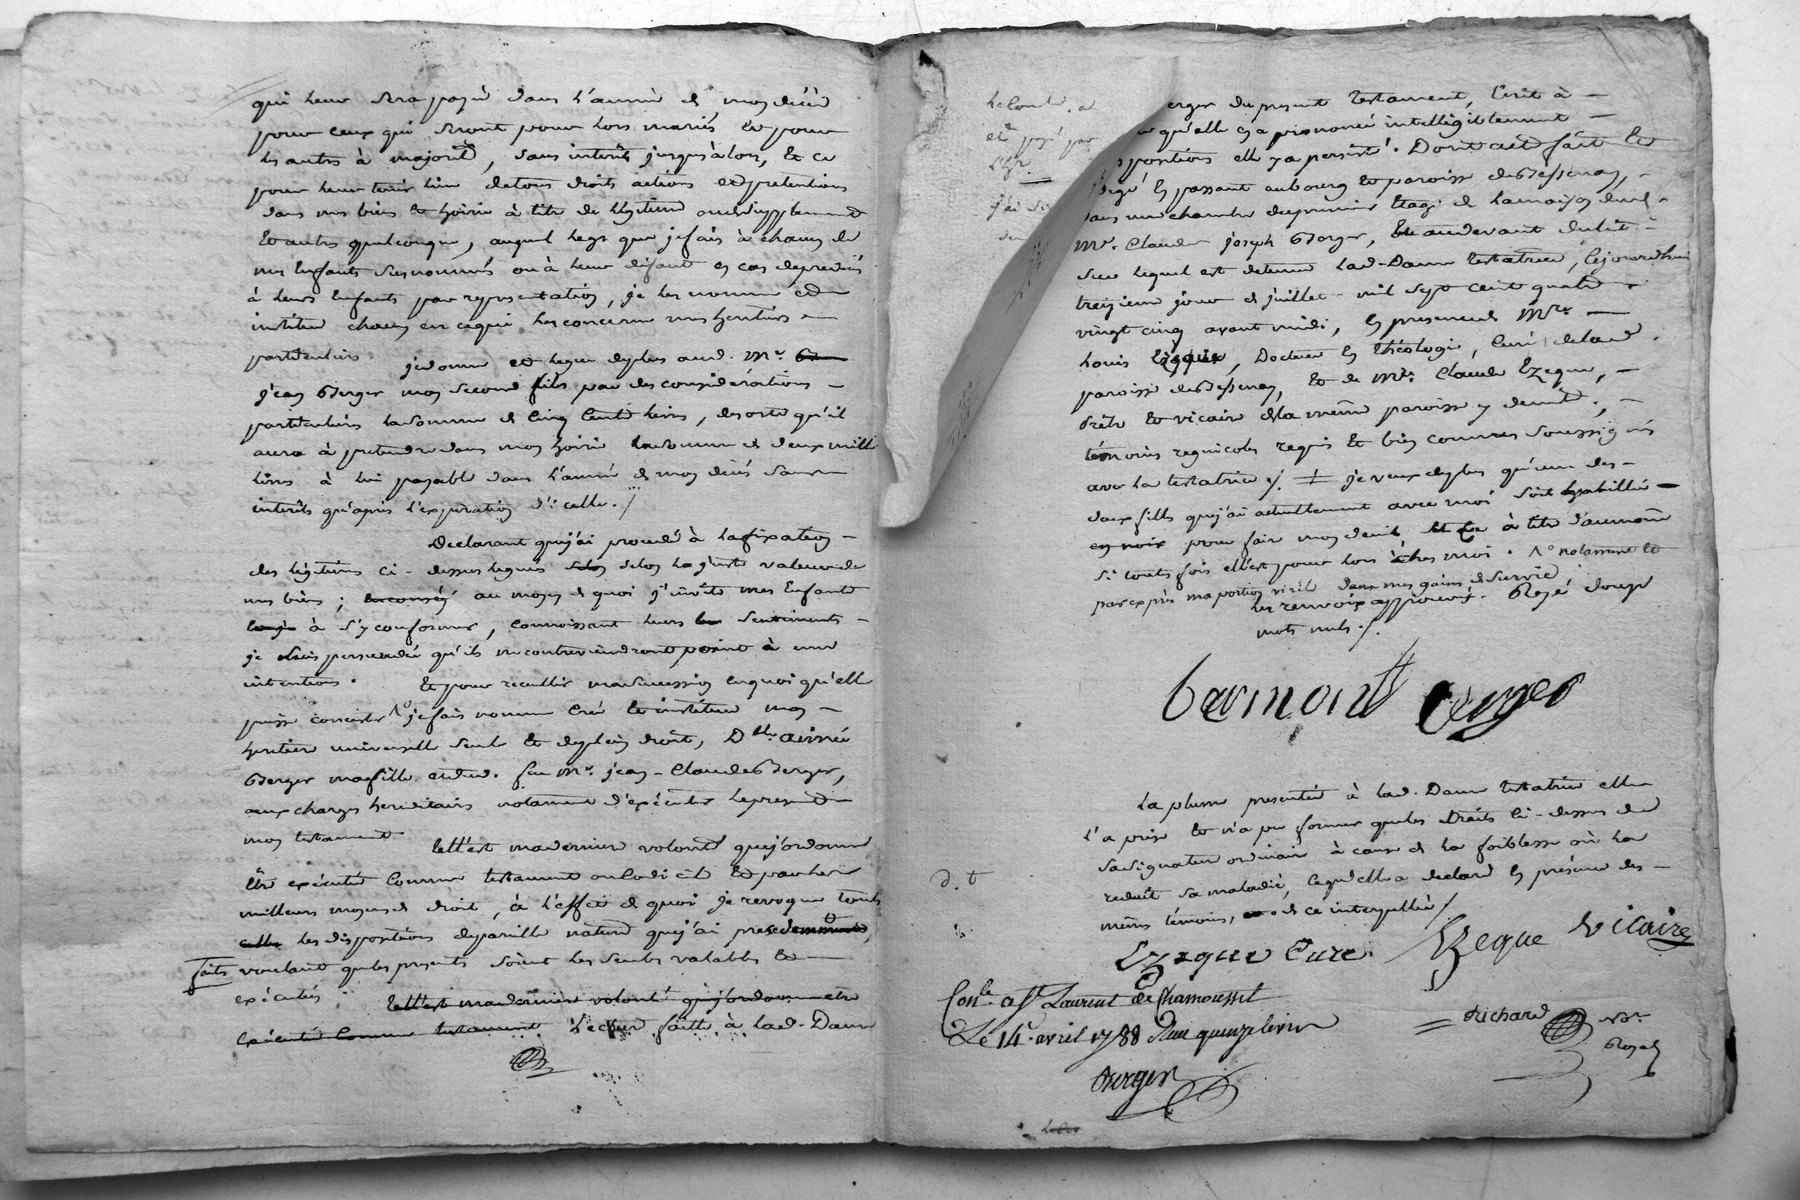 qui leur sera payé dans l'année de mon décès
pour ceux qui seront pour lors mariés et pour
les autres à majorité, sans interêts jusqu'alors, et ce
pour leur tenir lieu de tous droits actions et pretentions
dans mes biens et hoirie à titre de légitime ou de supplement
et autres quelconques, auquel legs que je fais à chacun de
mes enfants susnommés ou à leur défaut en cas de predecés
à leurs enfants par representation, je les nomme et
institue chacun en ce qui les concerne mes heritiers
particuliers. je donne et legue de plus aud. Mr.
jean Berger mon second fils par des considerations
particulieres la somme de cinq cents livres, de sorte qu'il
aura à pretendre dans mon hoirie la somme de deux mille
livres à lui payable dans l'année de mon décès sans
interêts qu'après l'expiration d'icelle ./
Declarant que j'ai procedé à la fixation
des légitimes ci-dessus leguées selon la juste valeur de
mes biens; au moyen de quoi j'invite mes enfants
à s'y conformer, connoissant leurs sentiments
je suis persuadée qu'ils ne contreviendront point à mes
intentions. Et pour recueillir ma succession en quoi qu'elle
puisse consister je fais nomme crée et institue mon
heritier universelle seule et de plein droit, Dlle. aimée
Berger ma fille et dud. feu Mr. jean-Claude Berger,
aux charges hereditaires notament d'exécuter le present
mon testament telle est ma derniere volonté que j'ordonne
être exécutée comme testament ou codicile et par les
meilleurs moyens de droit, à l'effet de quoi je revoque toutes
celles les dispositions de pareille nature que j'ai precedemment
faites voulant que les presentes soient les seules valables et
exécutées. telle est ma derniere volonté que j'ordonne etre
exécutée comme testament. Lecture faitte à lad. Dame
erger du present testament, écrit à
qu'elle en a prononcé intelligiblement
spositions elle y a persisté. Dont acte fait et
digé en passant au bourg et paroisse de Bessenay,
dans une chambre du premier étage de la maison dud.
Mr. Claude joseph Berger, et au devant du lit
sur lequel est detenue lad. Dame testatrice, cejourd'hui
treizieme jour de juillet mil sept cent quatre
vingt cinq avant midi, en presence de Mre.
Louis Ezeque, Docteur en théologie, curé de lad.
paroisse de Bessenay, et de Mre. Claude Ezeque,
prêtre et vicaire de la même paroisse y demt.,
témoins regnicoles requis et bien connus soussignés
avec la testatrice ./. je veux de plus qu'une des
deux filles que j'ai actuellement avec moi soit habillée
en noir pour faire mon deuil, et ce à titre d'aumone
si toutes fois elle est pour lors chés moi. notamment et
par exprès ma portion virile dans mes gains de survie
les renvois approuvés. Rayé douze
mots nuls ./.
bermont Berger
La plume presentée à lad. Dame testatrice elle
l'a prise et n'a pu former que les traits ci-dessus de
sa signature ordinaire à cause de la foiblesse où la
reduit sa maladie, ce qu'elle a declaré en présence des
mêmes témoins, de ce interpellée ./
d. t
Ezeque Curé. Ezeque vicaire
Conlé. a St. Laurent de Chamousset
Le 14. avril 1788 Reçu quinze livres
Berger
Richard Nore.
Royal